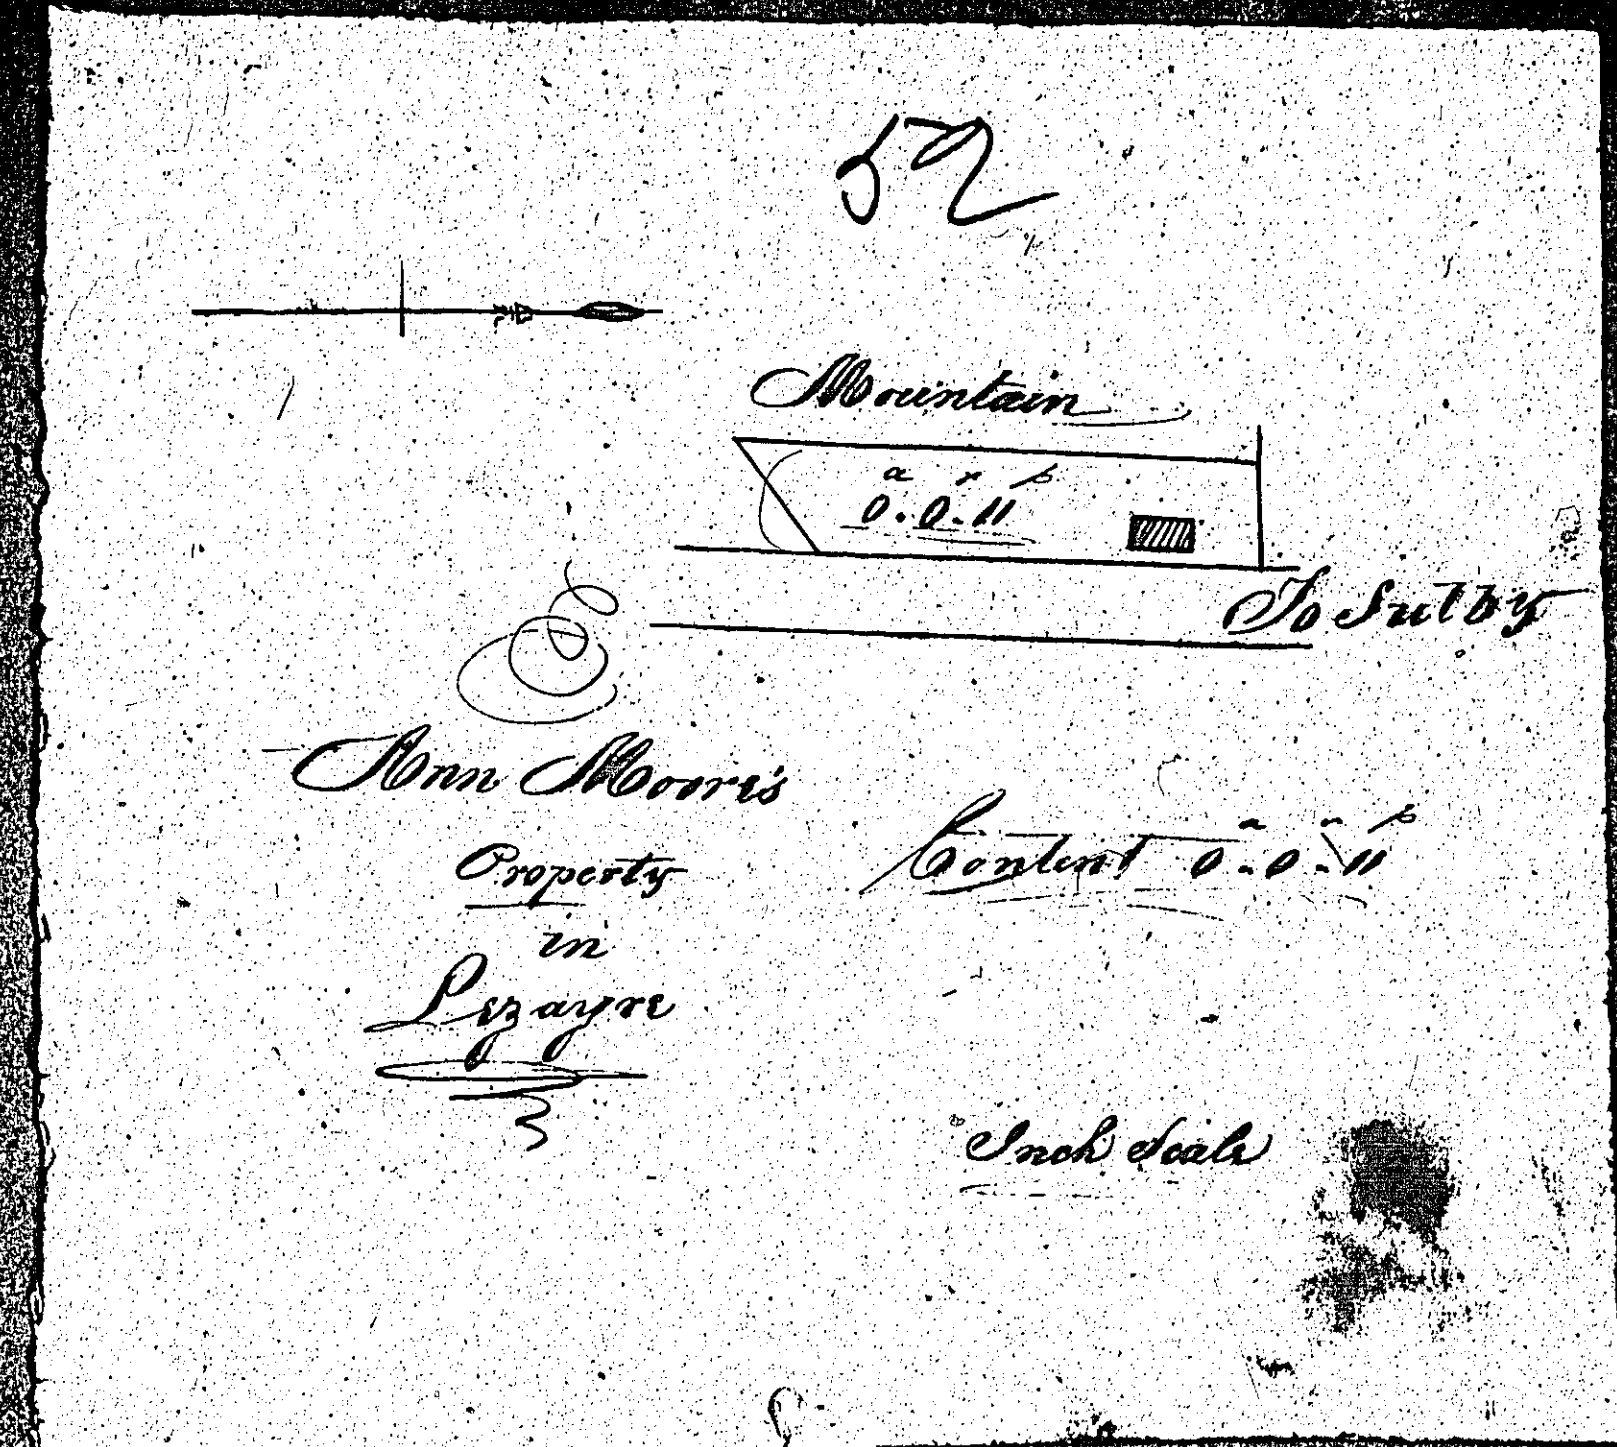 52
Mountain
a r p
0.0.11
To Sulby
Ann Moore's
Property
in
Lezayre
a r p
Content 0.0.11
Inch Scale